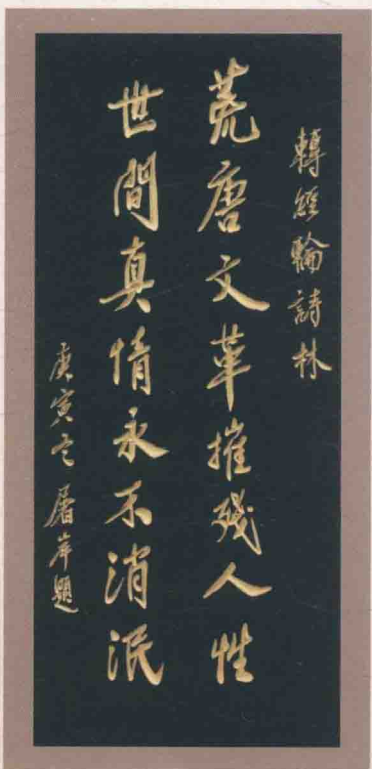 轉經輪詩林
荒唐文革摧殘人性
世間真情永不消泯
庚寅冬屠岸題